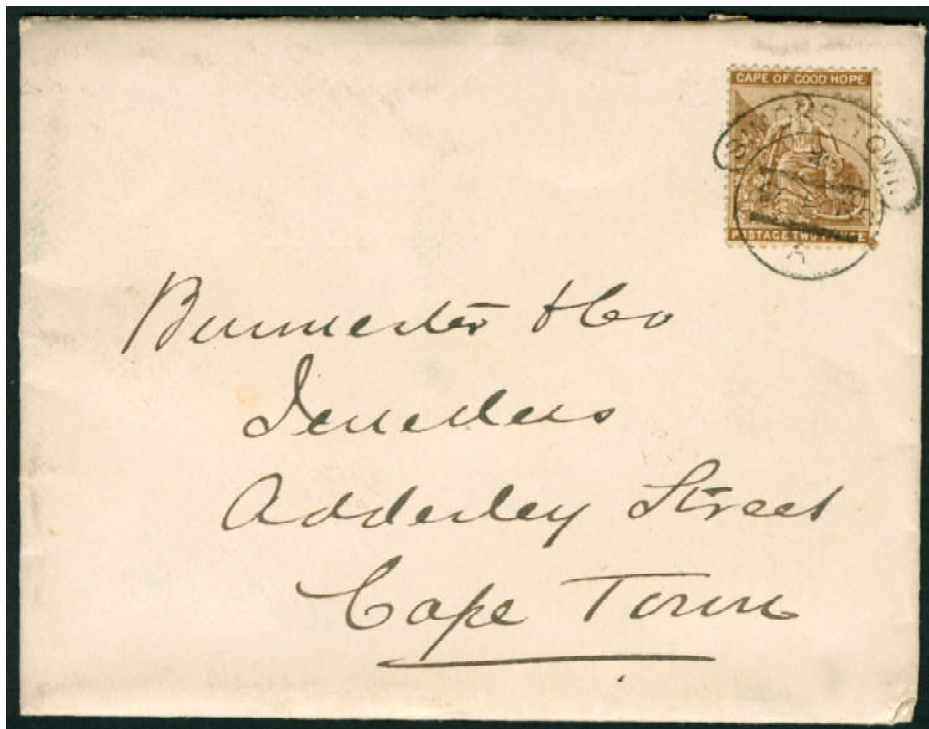 CAPE OF GOOD HOPE
SIMONS-TOWN
POSTAGE TWO PENCE
Burmester & Co
Jewellers
Adderley Street
Cape Town